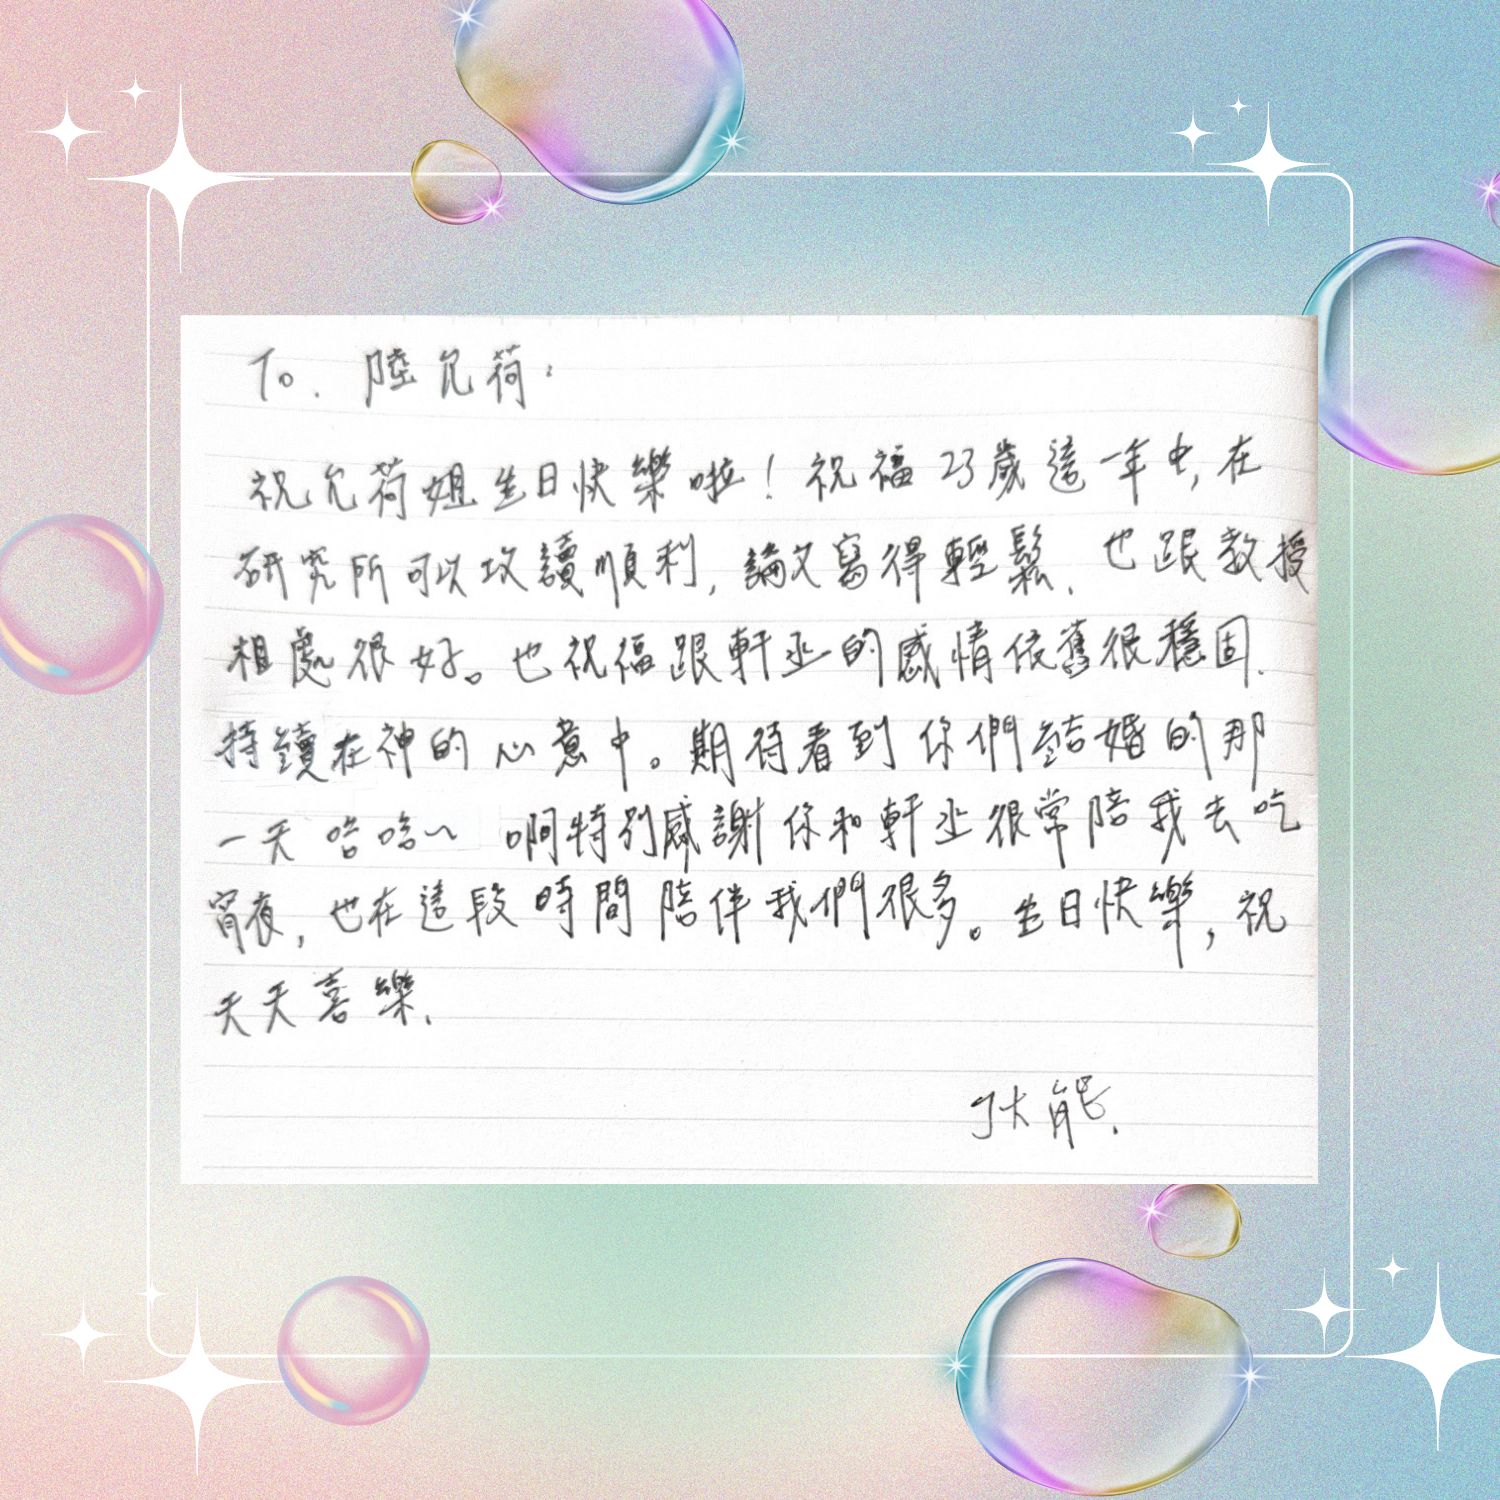 To. 陸允荷：
祝允荷姐生日快樂啦！祝福23歲這一年中，在
研究所可以攻讀順利，論文寫得輕鬆．也跟教授
相處很好。也祝福跟軒丞的感情依舊很穩固．
持續在神的心意中。期待看到你們結婚的那
一天哈哈～ 啊特別感謝你和軒丞很常陪我去吃
宵夜，也在這段時間陪伴我們很多。生日快樂，祝
天天喜樂．
能．